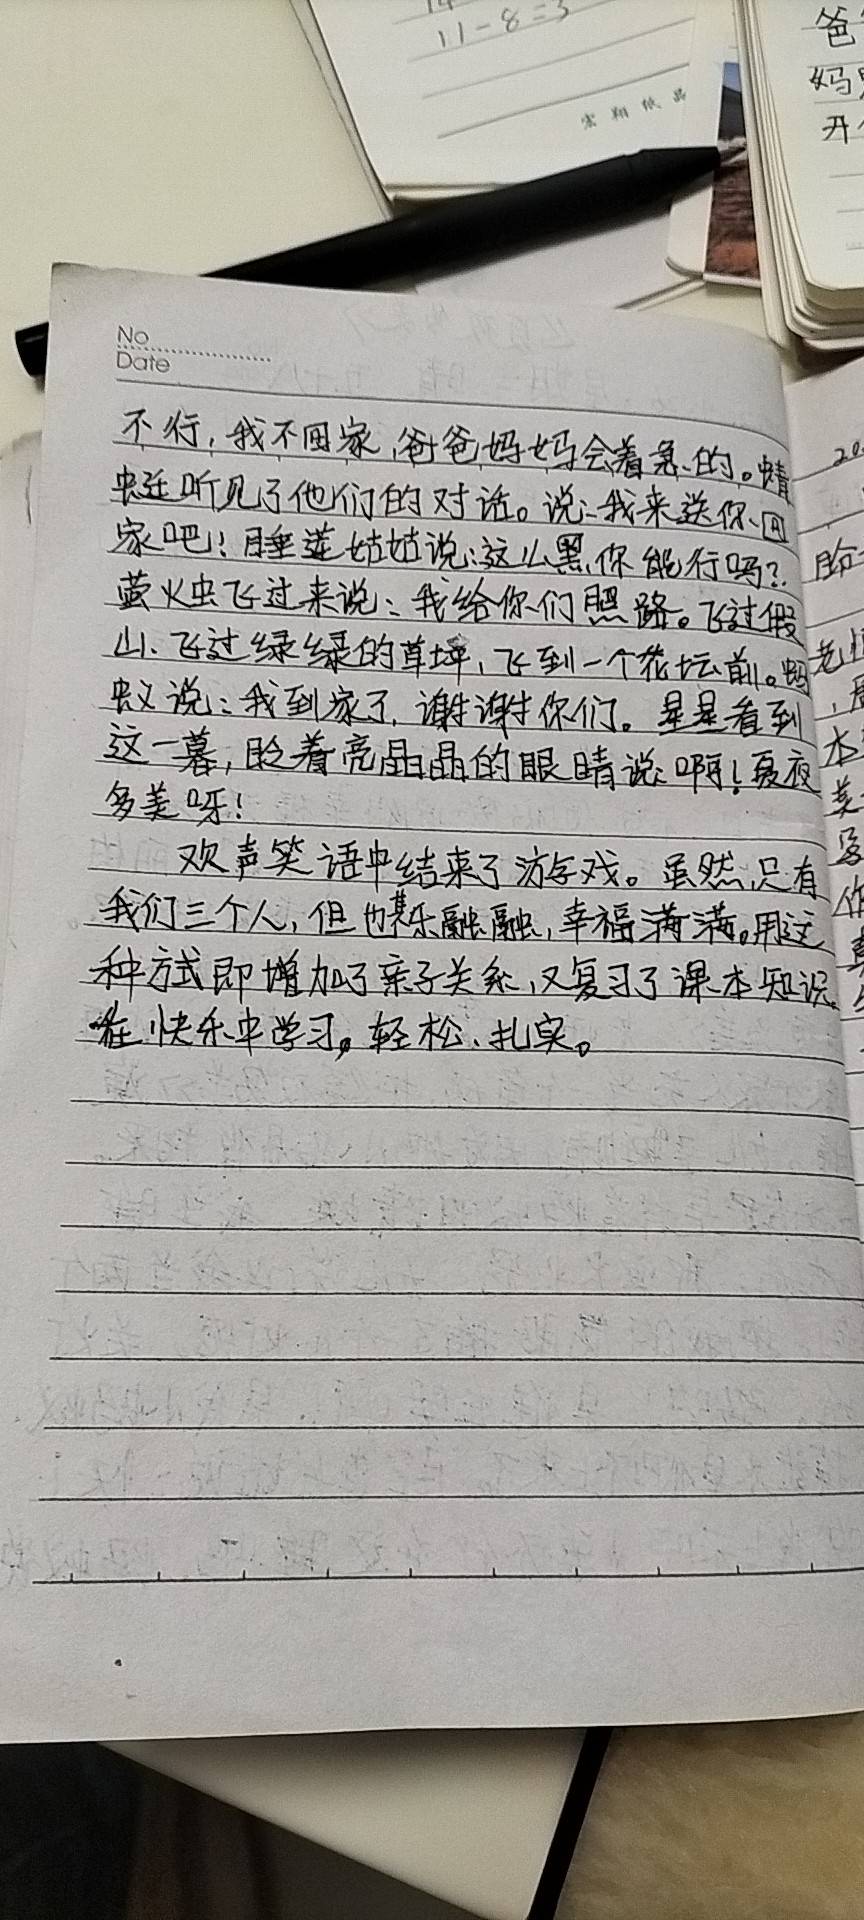 11-8=3
宏翔纸品
爸
妈
开
No
Date
不行,我不回家,爸爸妈妈会着急的。蜻
蜓听见了他们的对话。说:我来送你回
家吧!睡莲姑姑说:这么黑你能行吗?
萤火虫飞过来说:我给你们照路。飞过假
山、飞过绿绿的草坪,飞到一个花坛前。蚂
蚁说:我到家了,谢谢你们。星星看到
这一幕,眨着亮晶晶的眼睛说:啊!夏夜
多美呀!
欢声笑语中结束了游戏。虽然只有
我们三个人,但也其乐融融,幸福满满。用这
种方式即增加了亲子关系,又复习了课本知识。
在快乐中学习。轻松、扎实。